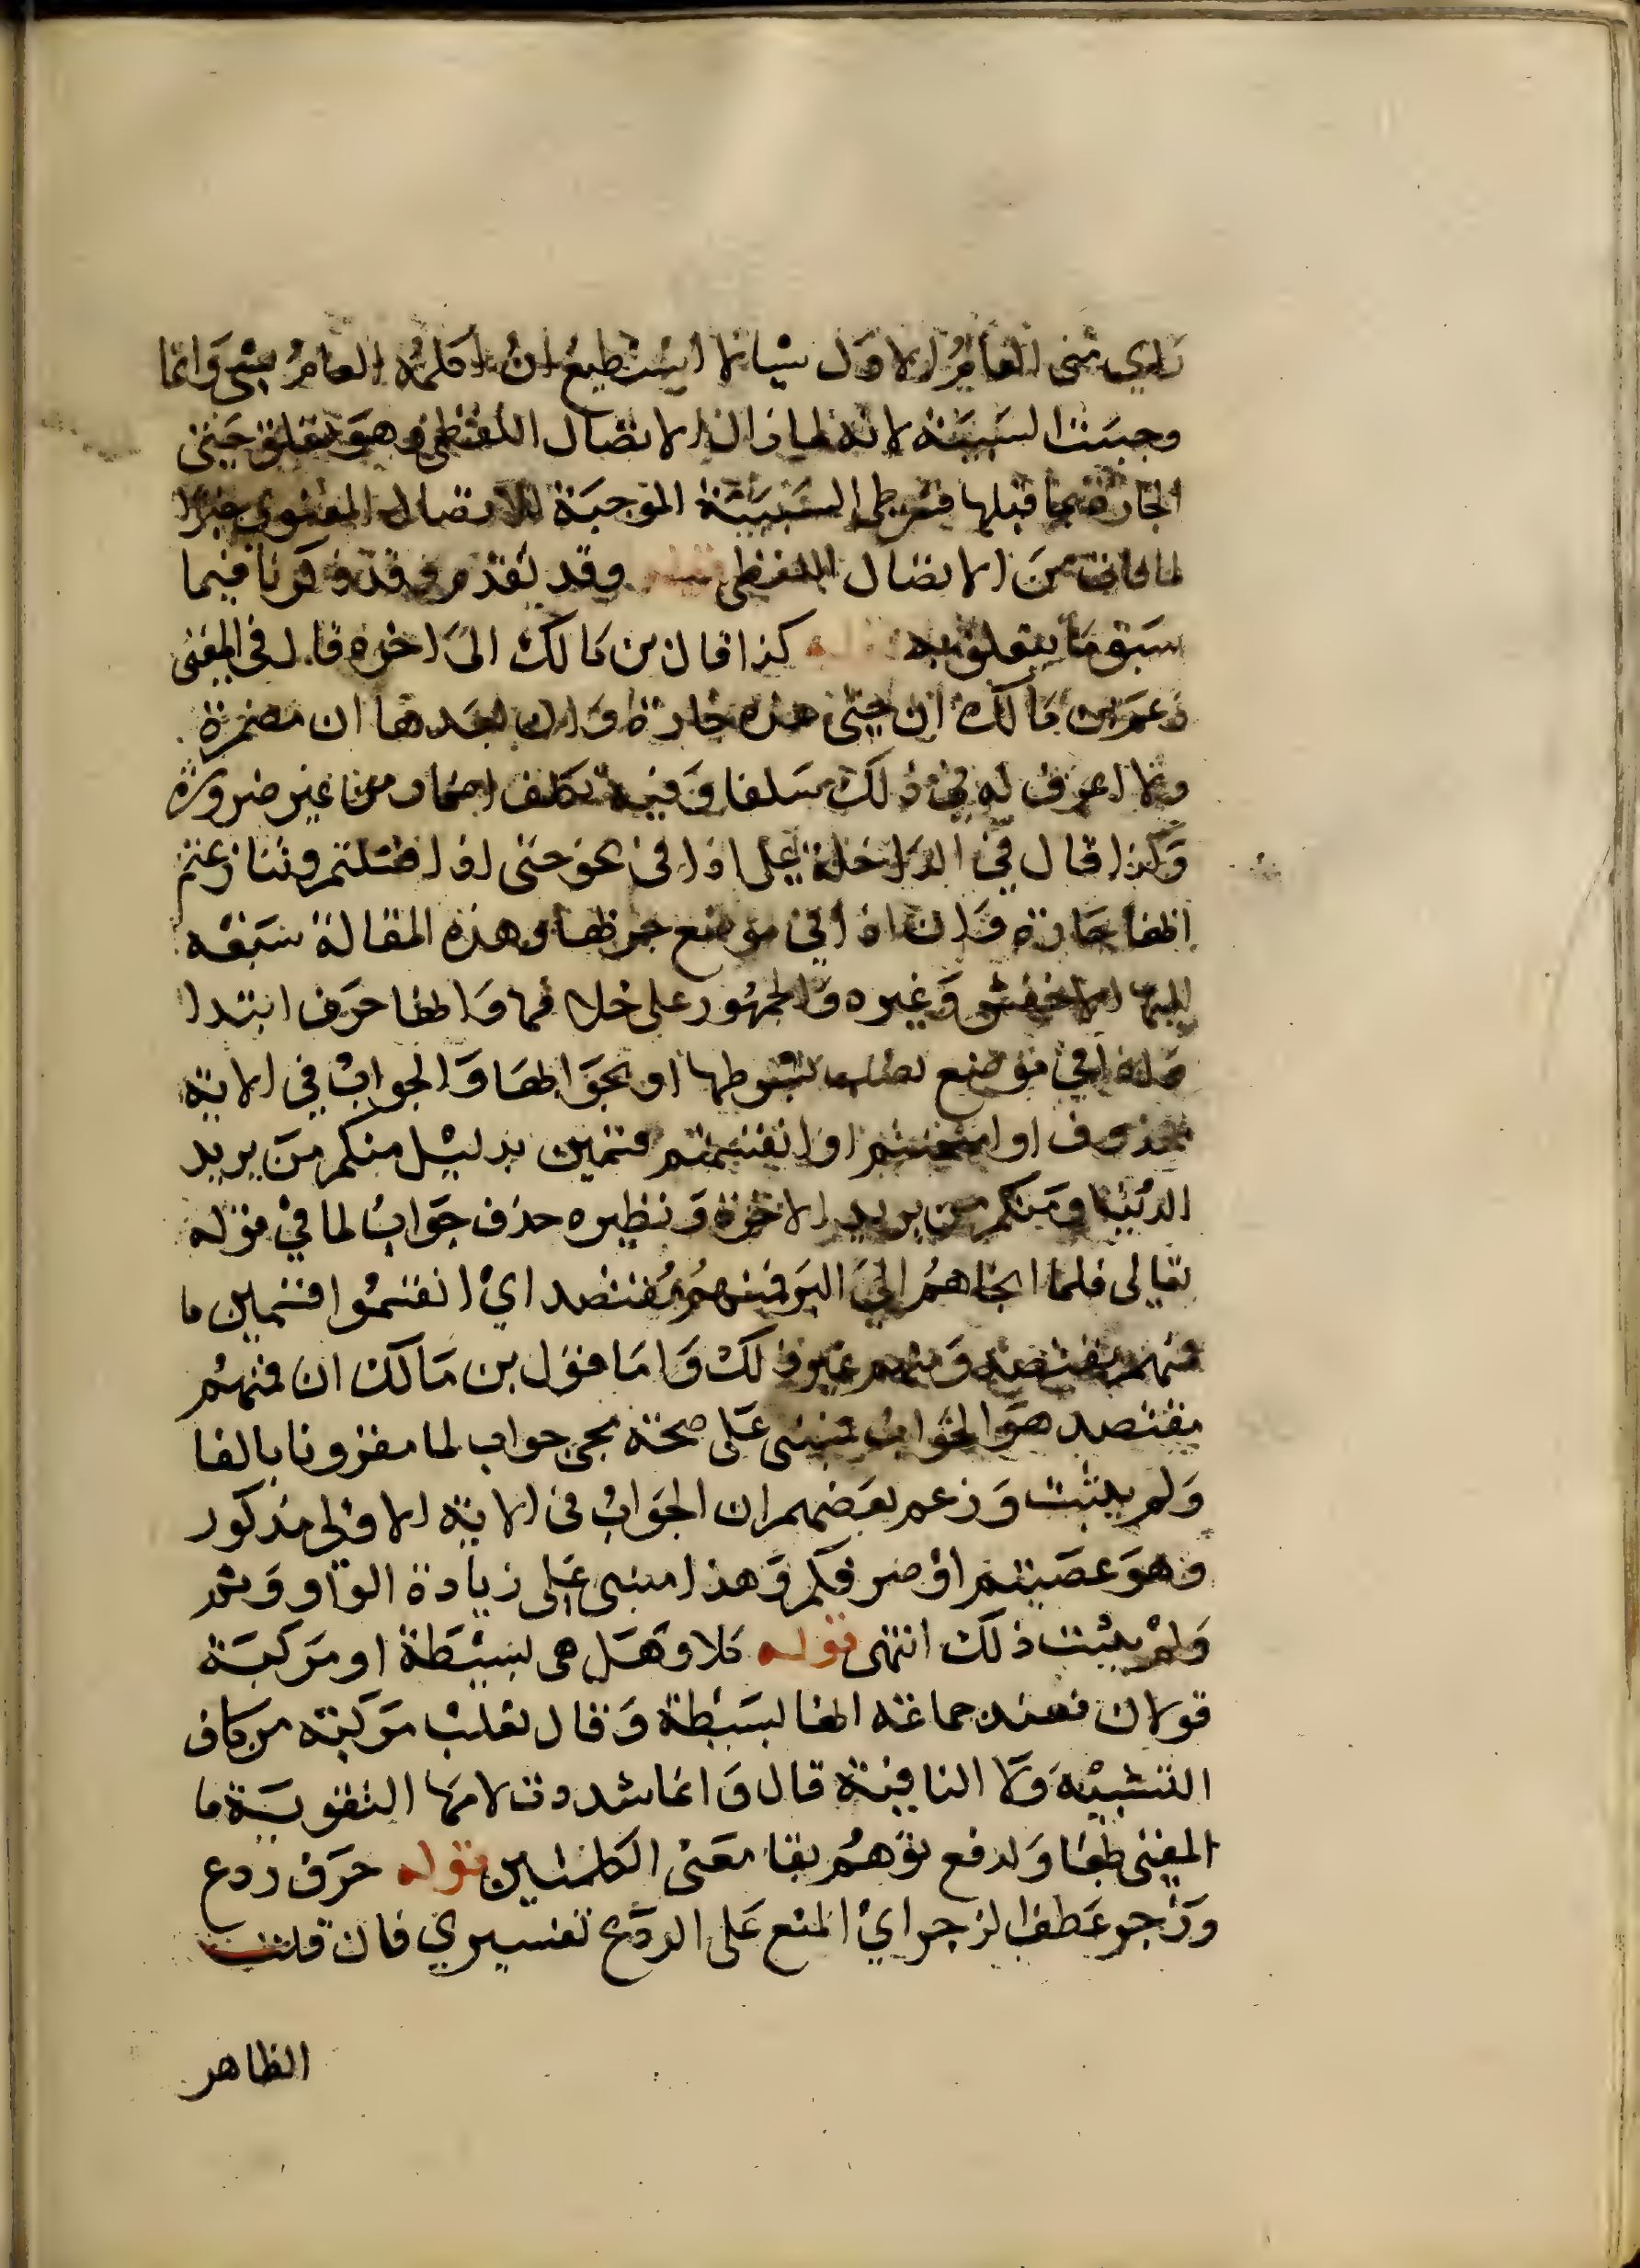 راي مني العام الاول شيا لا استطيع ان اكلمه العام بشي وانما
وجبت السببية لانه لما زال الاتصال اللفظي وهو تعلق حتى
الجارة بما قبلها شرط السببية الموجبة للاتصال المعنوي جبرا
لما فات من الاتصال اللفظي قوله وقد تقدم وقد ذكرنا فيما
سبق ما يتعلق به قوله كذا قال بن مالك الى اخره قال في المغنى
زعم ابن مالك ان حتى هذه جارة وان بعدها ان مضمرة
ولا اعرف له في ذلك سلفا وفيه تكلف اضمار من غير ضرورة
وكذا قال في الداخلة على اذا في نحو حتى اذا فشلتم وتنازعتم
انها جارة وان اذا في موضع جر بها وهذه المقالة سبقه
اليها الاخفش وغيره والجمهور على خلافها وانها حرف ابتدا
وان اذا في موضع نصب بشرطها او بجوابها والجواب في الاية
محذوف او امتحنتم او انقسمتم قسمين بدليل منكم من يريد
الدنيا ومنكم من يريد الاخرة ونظيره حذف جواب لما في قوله
تعالى فلما انجاهم الى البر فمنهم مقتصد اي انقسموا قسمين ما
فمنهم مقتصد ومنهم غير ذلك واما قول بن مالك ان فمنهم
مقتصد هو الجواب فمبنى على صحة مجي جواب لما مقرونا بالفا
ولم يثبت وزعم بعضهم ان الجواب في الاية الاولى مذكور
وهو عصيتم او صرفكم وهذا مبنى على زيادة الواو وثم
ولم يثبت ذلك انتهى قوله كلا وهل هى بسيطة او مركبة
قولان فعند جماعة انها بسيطة وقال ثعلب مركبة من كاف
التشبيه ولا النافية قال وانما شددت لامها لتقوية ما
المغنى بها ولدفع توهم بقا معنى الكلمتين قوله حرف ردع
وزجر عطف الزجر اي المنع على الردع تفسيري فان قلت
الظاهر